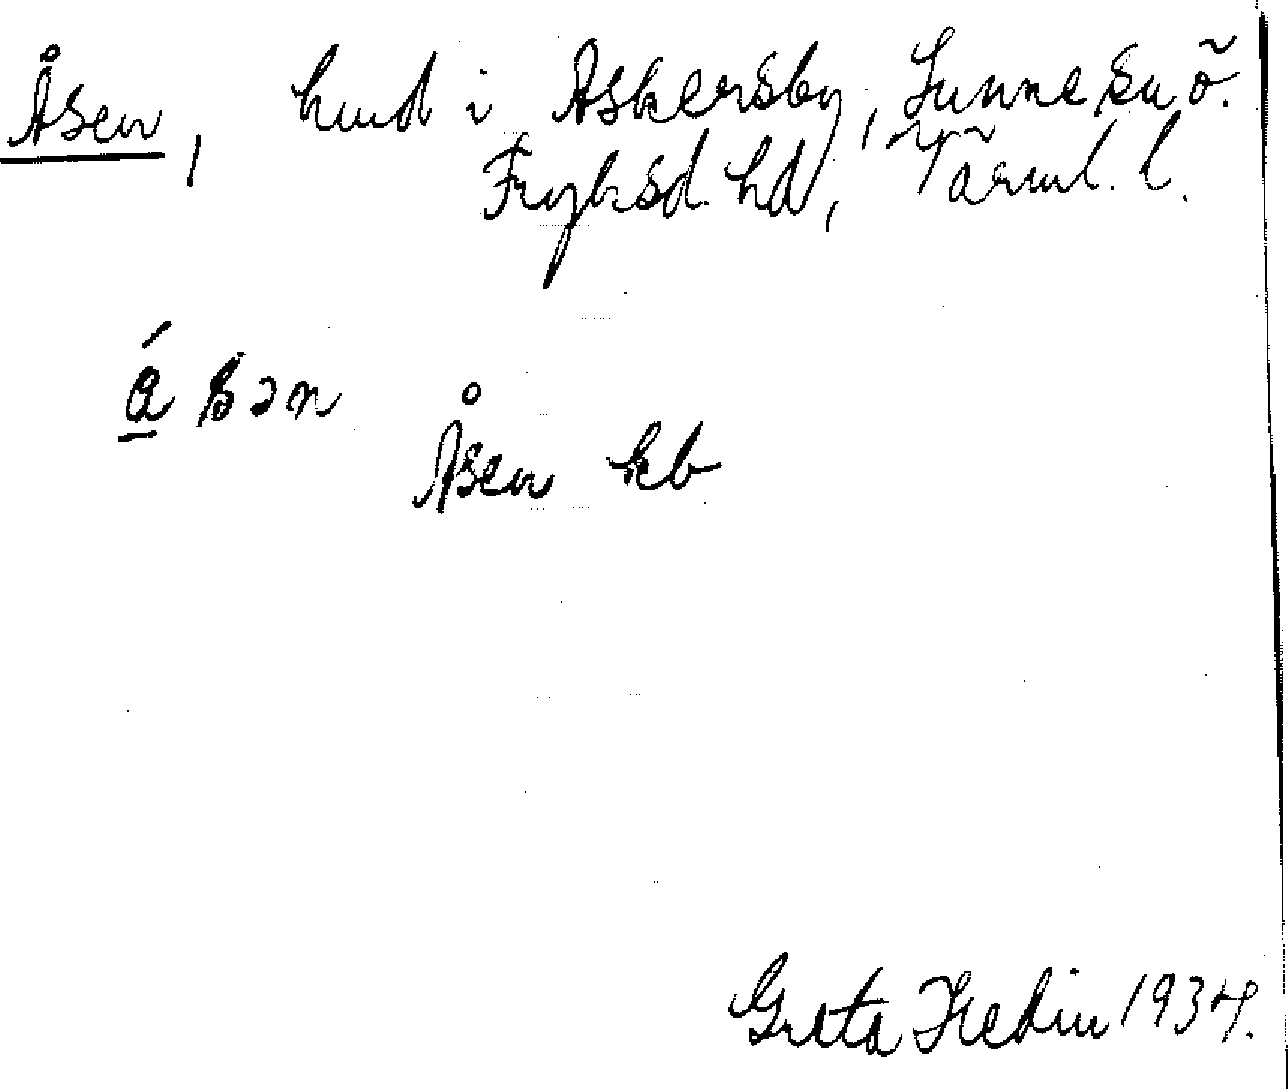 Åsen, hmd i Askersby, Sunne sn ö.
Fryksd. hd, Värml. l.
ásən
Åsen kb
Greta Hedin 1934.